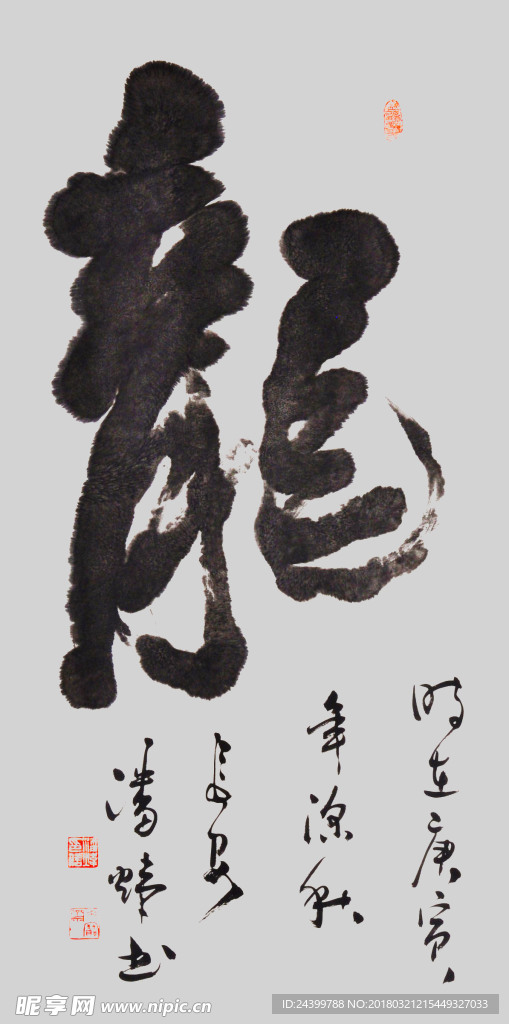 龍
時在庚寅
年深秋
長安
潘 书
昵享网 www.nipic.cn
ID:24399788 NO:20180321215449327033